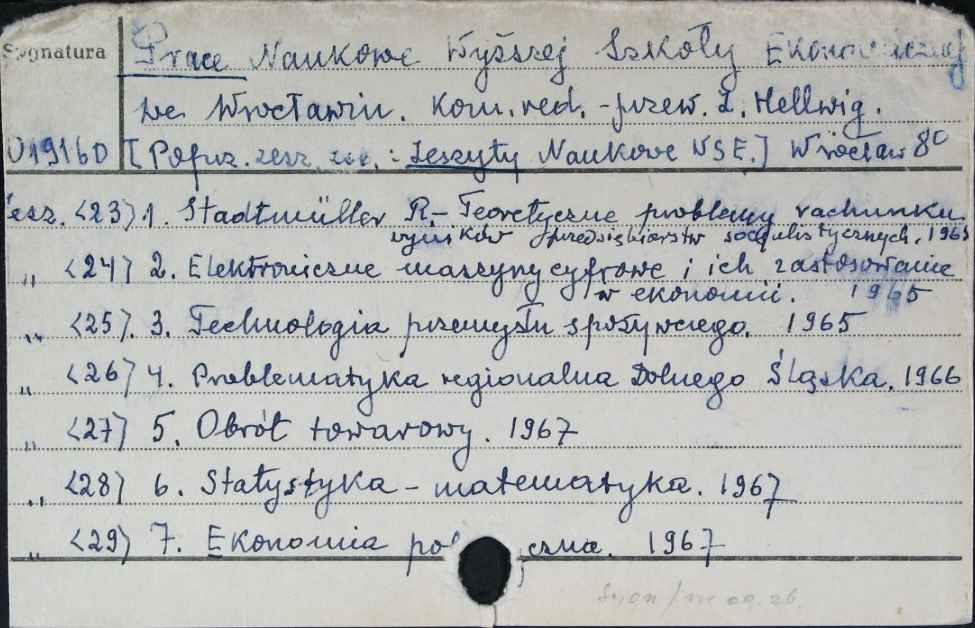 Sygnatura
Prace Naukowe Wyższej Szkoły Ekonomicznej
we Wrocławiu. Kom. red. - przew. Z. Hellwig.
019160 [Poprz. zesz. : Zeszyty Naukowe WSE.] Wrocław 80
zesz. <23> 1. Stadtmüller R - Teoretyczne problemy rachunku
wyników przedsiębiorstw socjalistycznych. 1965
„ <24> 2. Elektroniczne maszyny cyfrowe i ich zastosowanie
w ekonomii. 1965
„ <25>. 3. Technologia przemysłu spożywczego. 1965
„ <26> 4. Problematyka regionalna Dolnego Śląska. 1966
„ <27> 5. Obrót towarowy. 1967
„ <28> 6. Statystyka - matematyka. 1967
„ <29> 7. Ekonomia pol czna. 1967